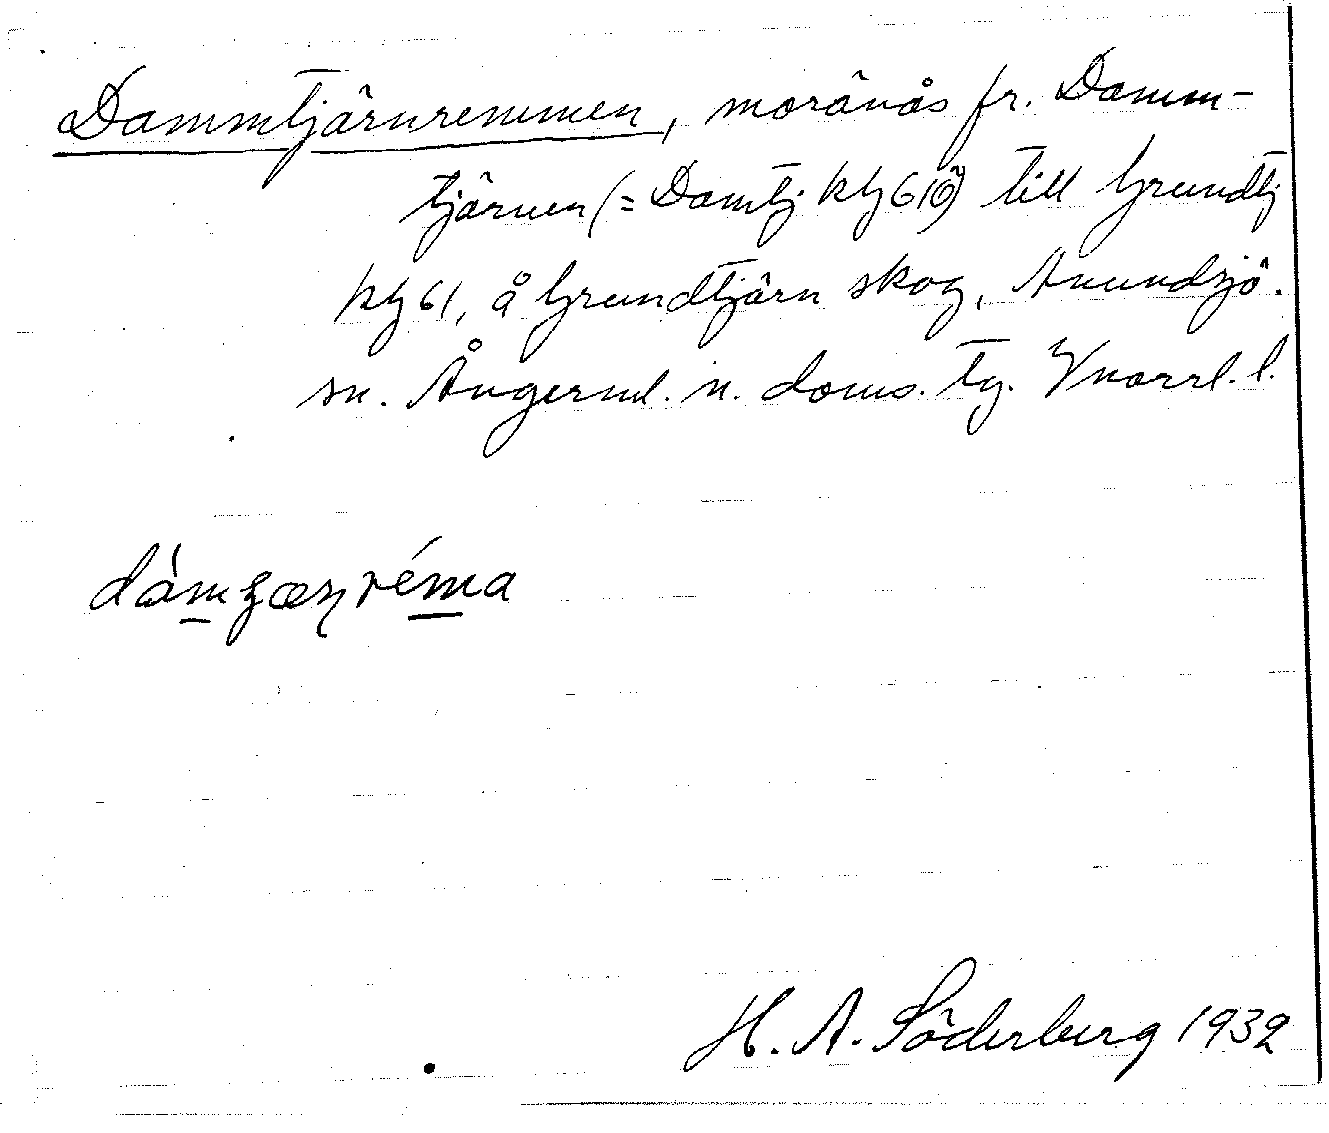 Dammtjärnremmen, moränås fr. Damm-
tjärnen (= Damtj ktj 61ö) till Grundtj
ktj 61, å Grundtjärn skog, Anundsjö.
sn. Ångerml. n. doms. tg. Vnorrl. l.
dȧm ræṇréma
H. A. Söderberg 1932